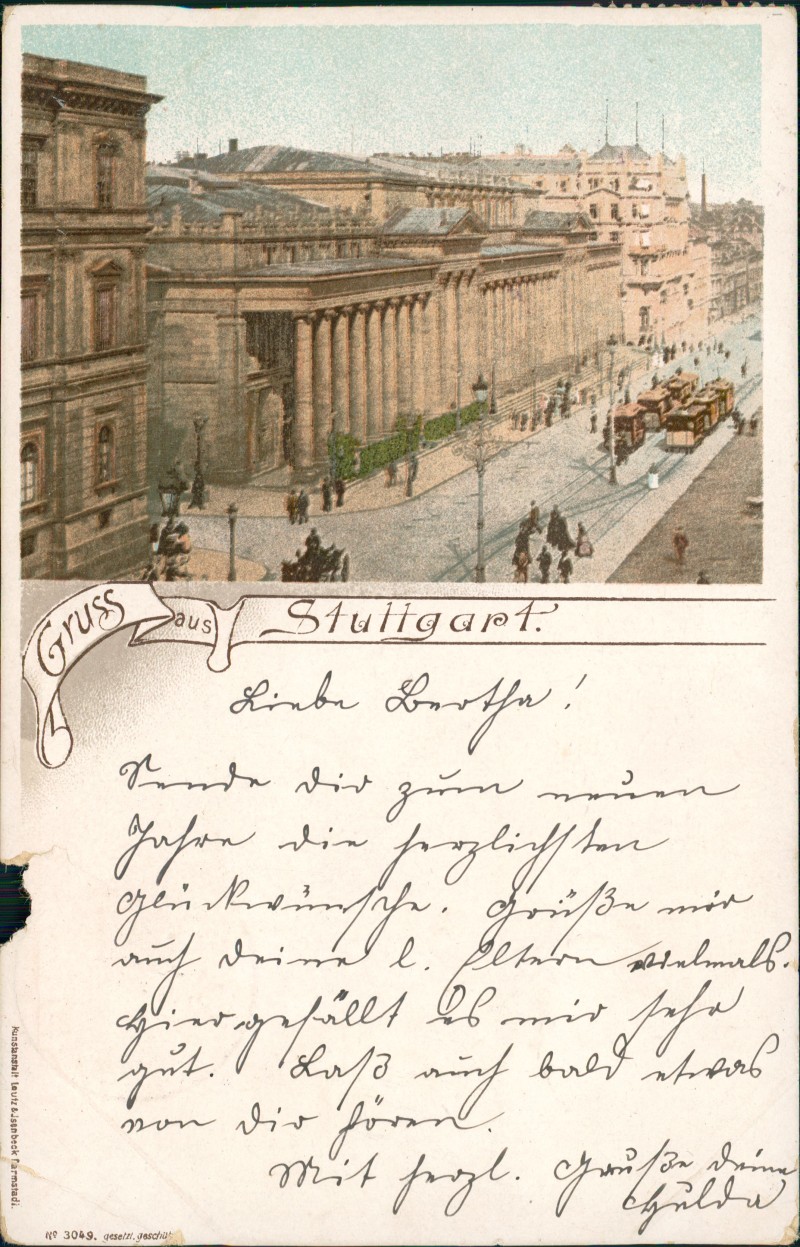 Gruss aus Stuttgart.
Liebe Bertha!
Sende dir zum neuen
Jahre die herzlichsten
Glückwünsche. Grüße mir
auch deine l. Eltern vielmals.
Hier gefällt es mir sehr
gut. Laß auch bald etwas
von dir hören.
Mit herzl. Gruße deine
Hulda
Kunstanstalt Lautz & Isenbeck Darmstadt.
No 3049. gesetzl. geschüt